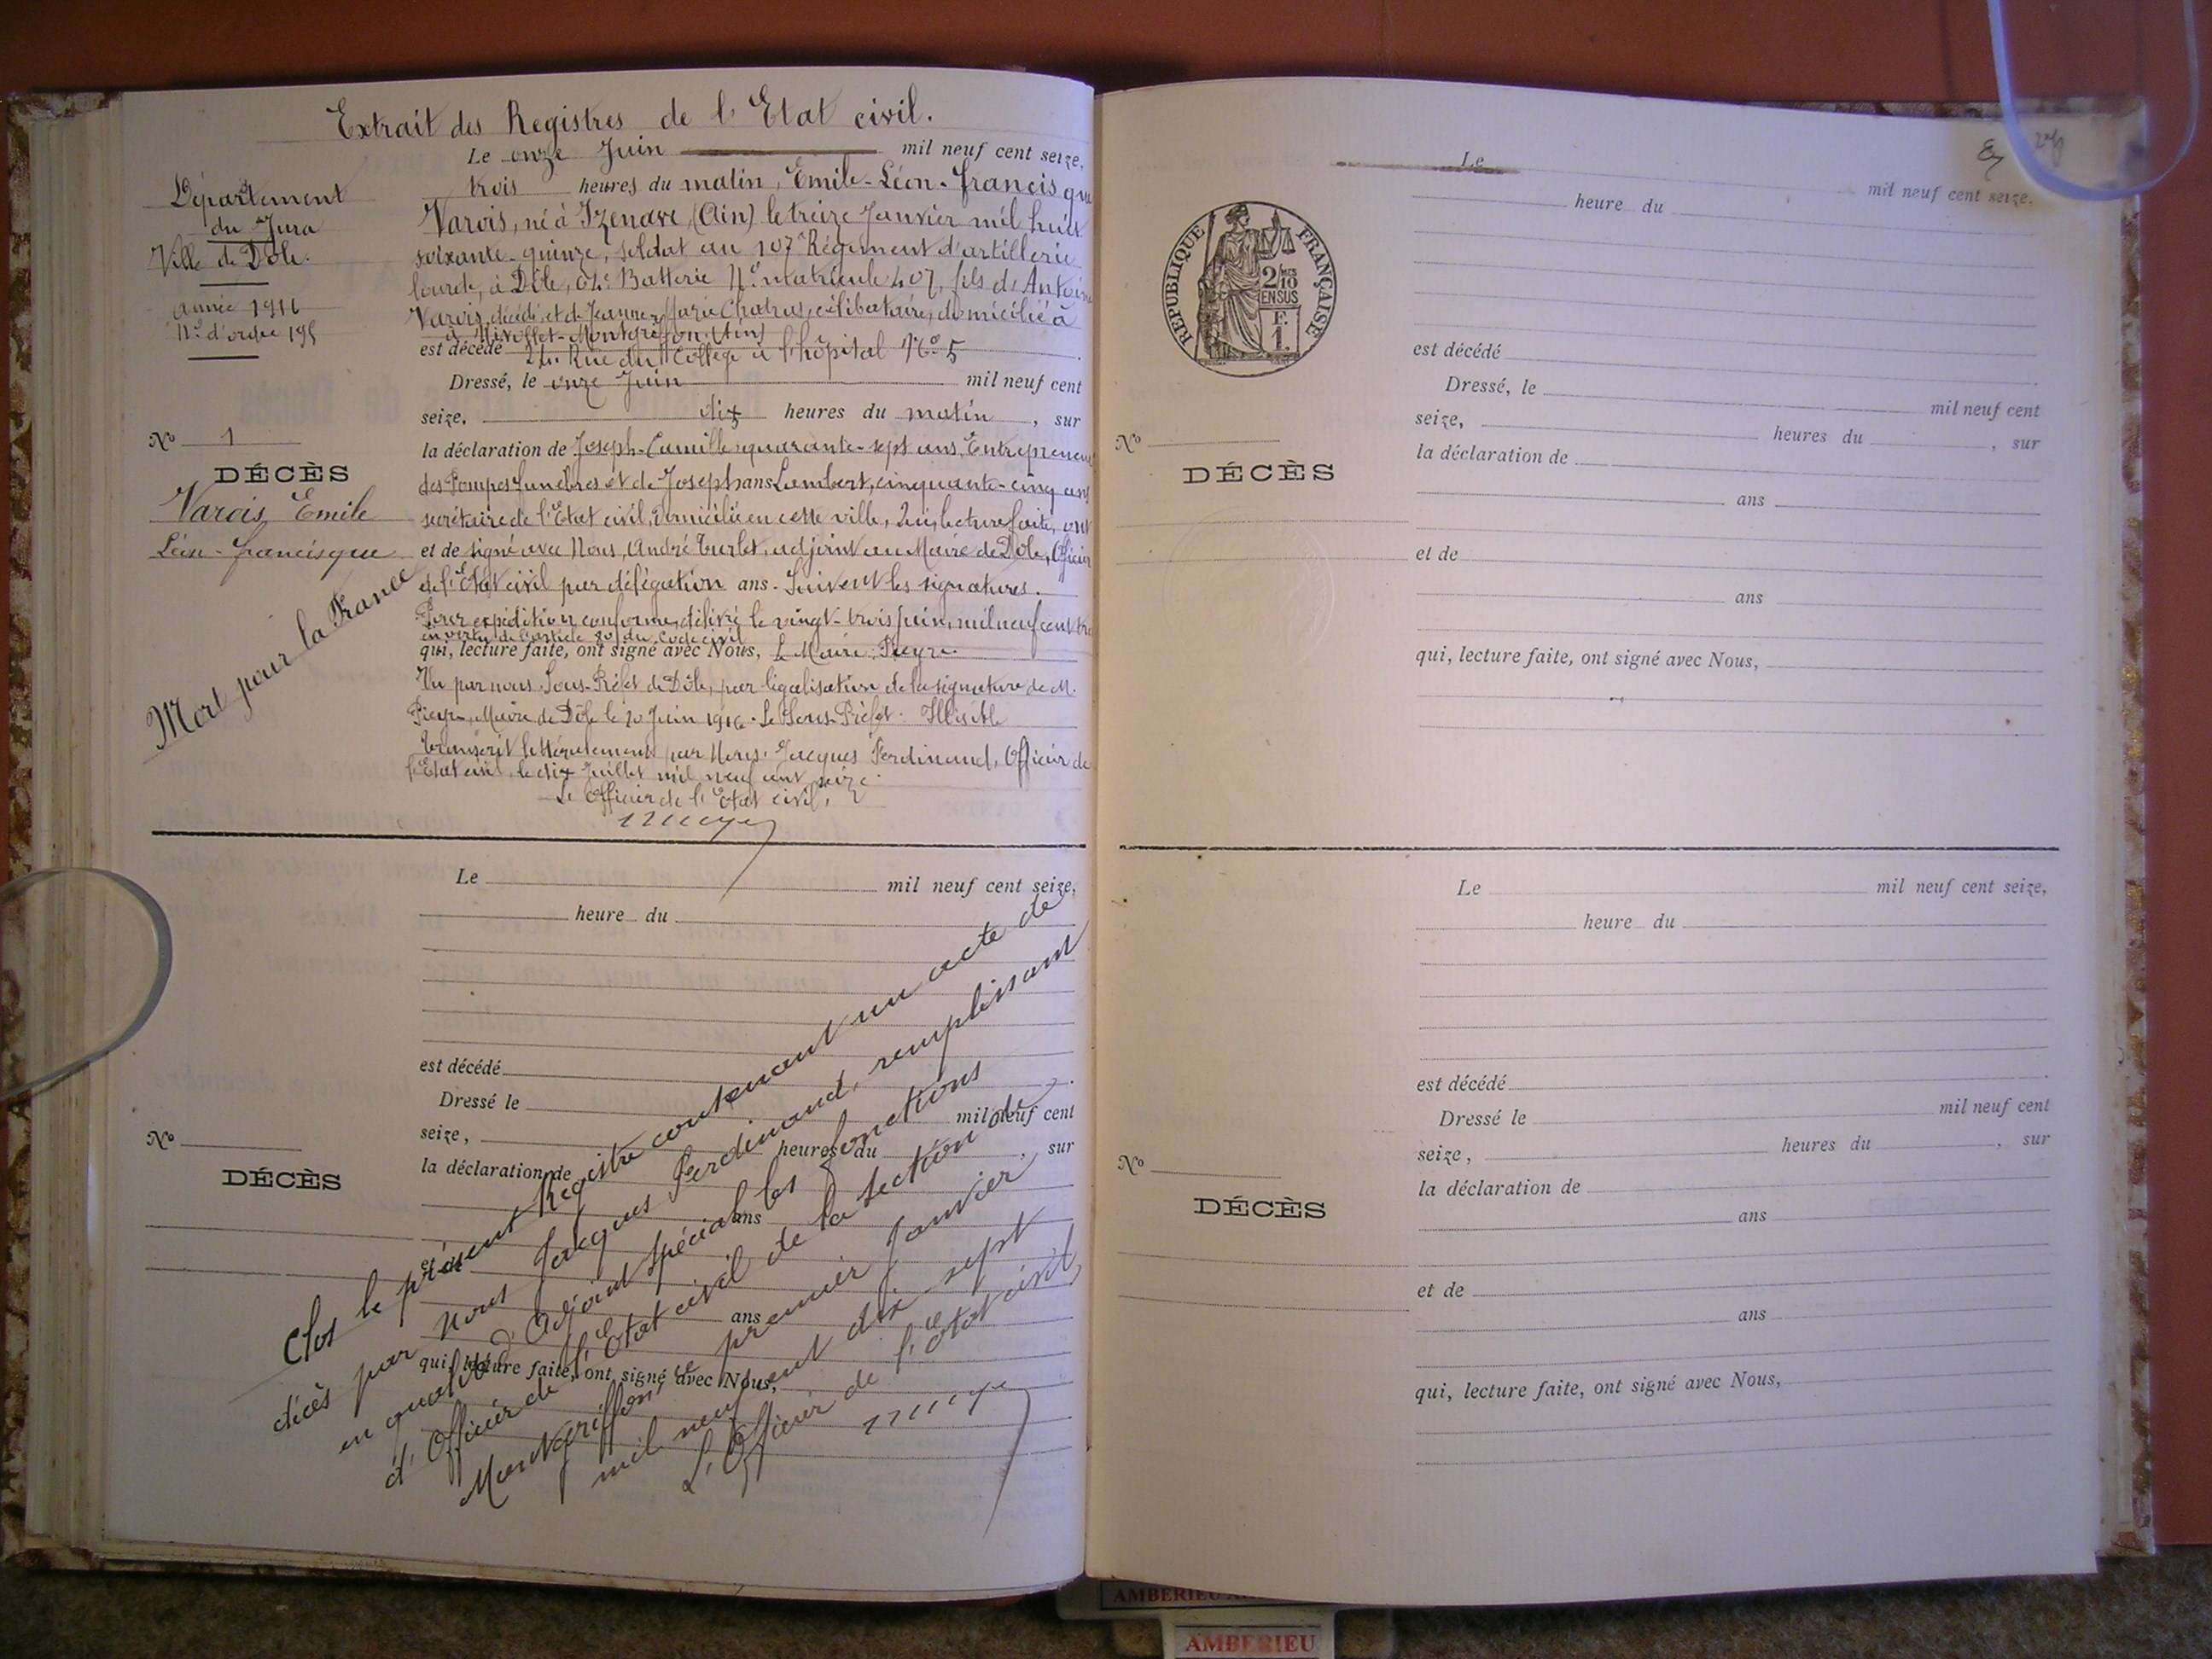 Extrait des Registres de l'Etat civil.
Département
du Jura
Ville de Dôle.
année 1916
N° d'ordre 195
N° 1
DÉCÈS
Varois Emile
Léon-francisque
Mort pour la France
Le onze Juin mil neuf cent seize,
trois heures du matin, Emile-Léon-francis que
Varois, né à Izenave, (Ain) le treize Janvier mil huit
soixante-quinze, soldat au 107e Régiment d'artillerie
lourde, à Dôle, 64e Batterie N° matricule 407, fils de Antoine
Varois, décédé, et de Jeanne, Marie Chatrus, célibataire, domicilié à
à Nivollet-Montgriffon (Ain)
est décédé Rue du Collège à l'hôpital N° 5
Dressé, le onze Juin mil neuf cent
seize, dix heures du matin, sur
la déclaration de Joseph-Camille quarante-sept ans, Entrepreneur
des Pompes funèbres et de Joseph ans Lambert, cinquante-cinq ans
secrétaire de l'Etat civil, domiciliés en cette ville, Qui, lecture faite, ont
et de signé avec Nous, André Turlet, adjoint au Maire de Dôle, Officier
de l'Etat civil par délégation ans. Suivent les signatures.
Pour expédition conforme, délivré le vingt-trois Juin, mil neuf cent
en vertu de l'article 80 du Code civil
qui, lecture faite, ont signé avec Nous, Le Maire: Pieyre.
Vu par nous, Sous-Préfet de Dôle, pour légalisation de la signature de M.
Pieyre, Maire de Dôle le 20 Juin 1916. Le Sous-Préfet: Illisible
Transcrit littéralement par Nous, Jacques Ferdinand, Officier de
l'Etat civil, le dix Juillet mil neuf cent seize.
L'Officier de l'Etat civil,
Le mil neuf cent seize,
heure du
est décédé
Dressé le mil neuf cent
seize, heures du , sur
la déclaration de
ans
et de
ans
qui, lecture faite, ont signé avec Nous,
N°
DÉCÈS
Clos le présent Registre contenant un acte de
décès par nous Jacques Ferdinand, remplissant
en qualité d'Adjoint spécial les fonctions
d'Officier de l'Etat civil de la section de
Montgriffon ce premier Janvier
mil neuf cent dix sept
L'Officier de l'Etat civil
RÉPUBLIQUE FRANÇAISE
2/10
EN SUS
F.
1.
Le mil neuf cent seize.
heure du
est décédé
Dressé, le mil neuf cent
seize, heures du , sur
la déclaration de
ans
et de
ans
qui, lecture faite, ont signé avec Nous,
N°
DÉCÈS
Le mil neuf cent seize,
heure du
est décédé
Dressé le mil neuf cent
seize, heures du , sur
la déclaration de
ans
et de
ans
qui, lecture faite, ont signé avec Nous,
N°
DÉCÈS
AMBERIEU
AMBERIEU